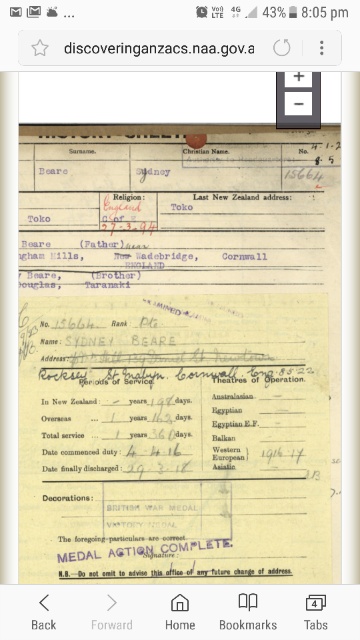 ... VoLTE 4G 43% 8:05 pm
discoveringanzacs.naa.gov.a
+
−
HISTORY SHEET
Surname. Christian Name. No.
Beare Sydney 15664
Religion: Last New Zealand address:
England
Toko C of E Toko
27-3-94
Beare (Father)
Hills, New Wadebridge, Cornwall
ENGLAND
Beare, (Brother)
Douglas, Taranaki
No. 15664 Rank Pte
Name: SYDNEY BEARE
Address:
St Mabyn. Cornwall. Eng 8.5.22
Periods of Service. Theatres of Operation.
In New Zealand: - years days. Australasian
Overseas ... 1 years days. Egyptian
Egyptian E.F.
Total service ... 1 years days. Balkan
Date commenced duty: 4.4.16 Western European } 1916-17
Date finally discharged: 29.3.18 Asiatic
Decorations:
BRITISH WAR MEDAL
VICTORY MEDAL
The foregoing particulars are correct.
MEDAL ACTION COMPLETE.
Signature:
N.B.—Do not omit to advise this office of any future change of address.
Back Forward Home Bookmarks 4 Tabs